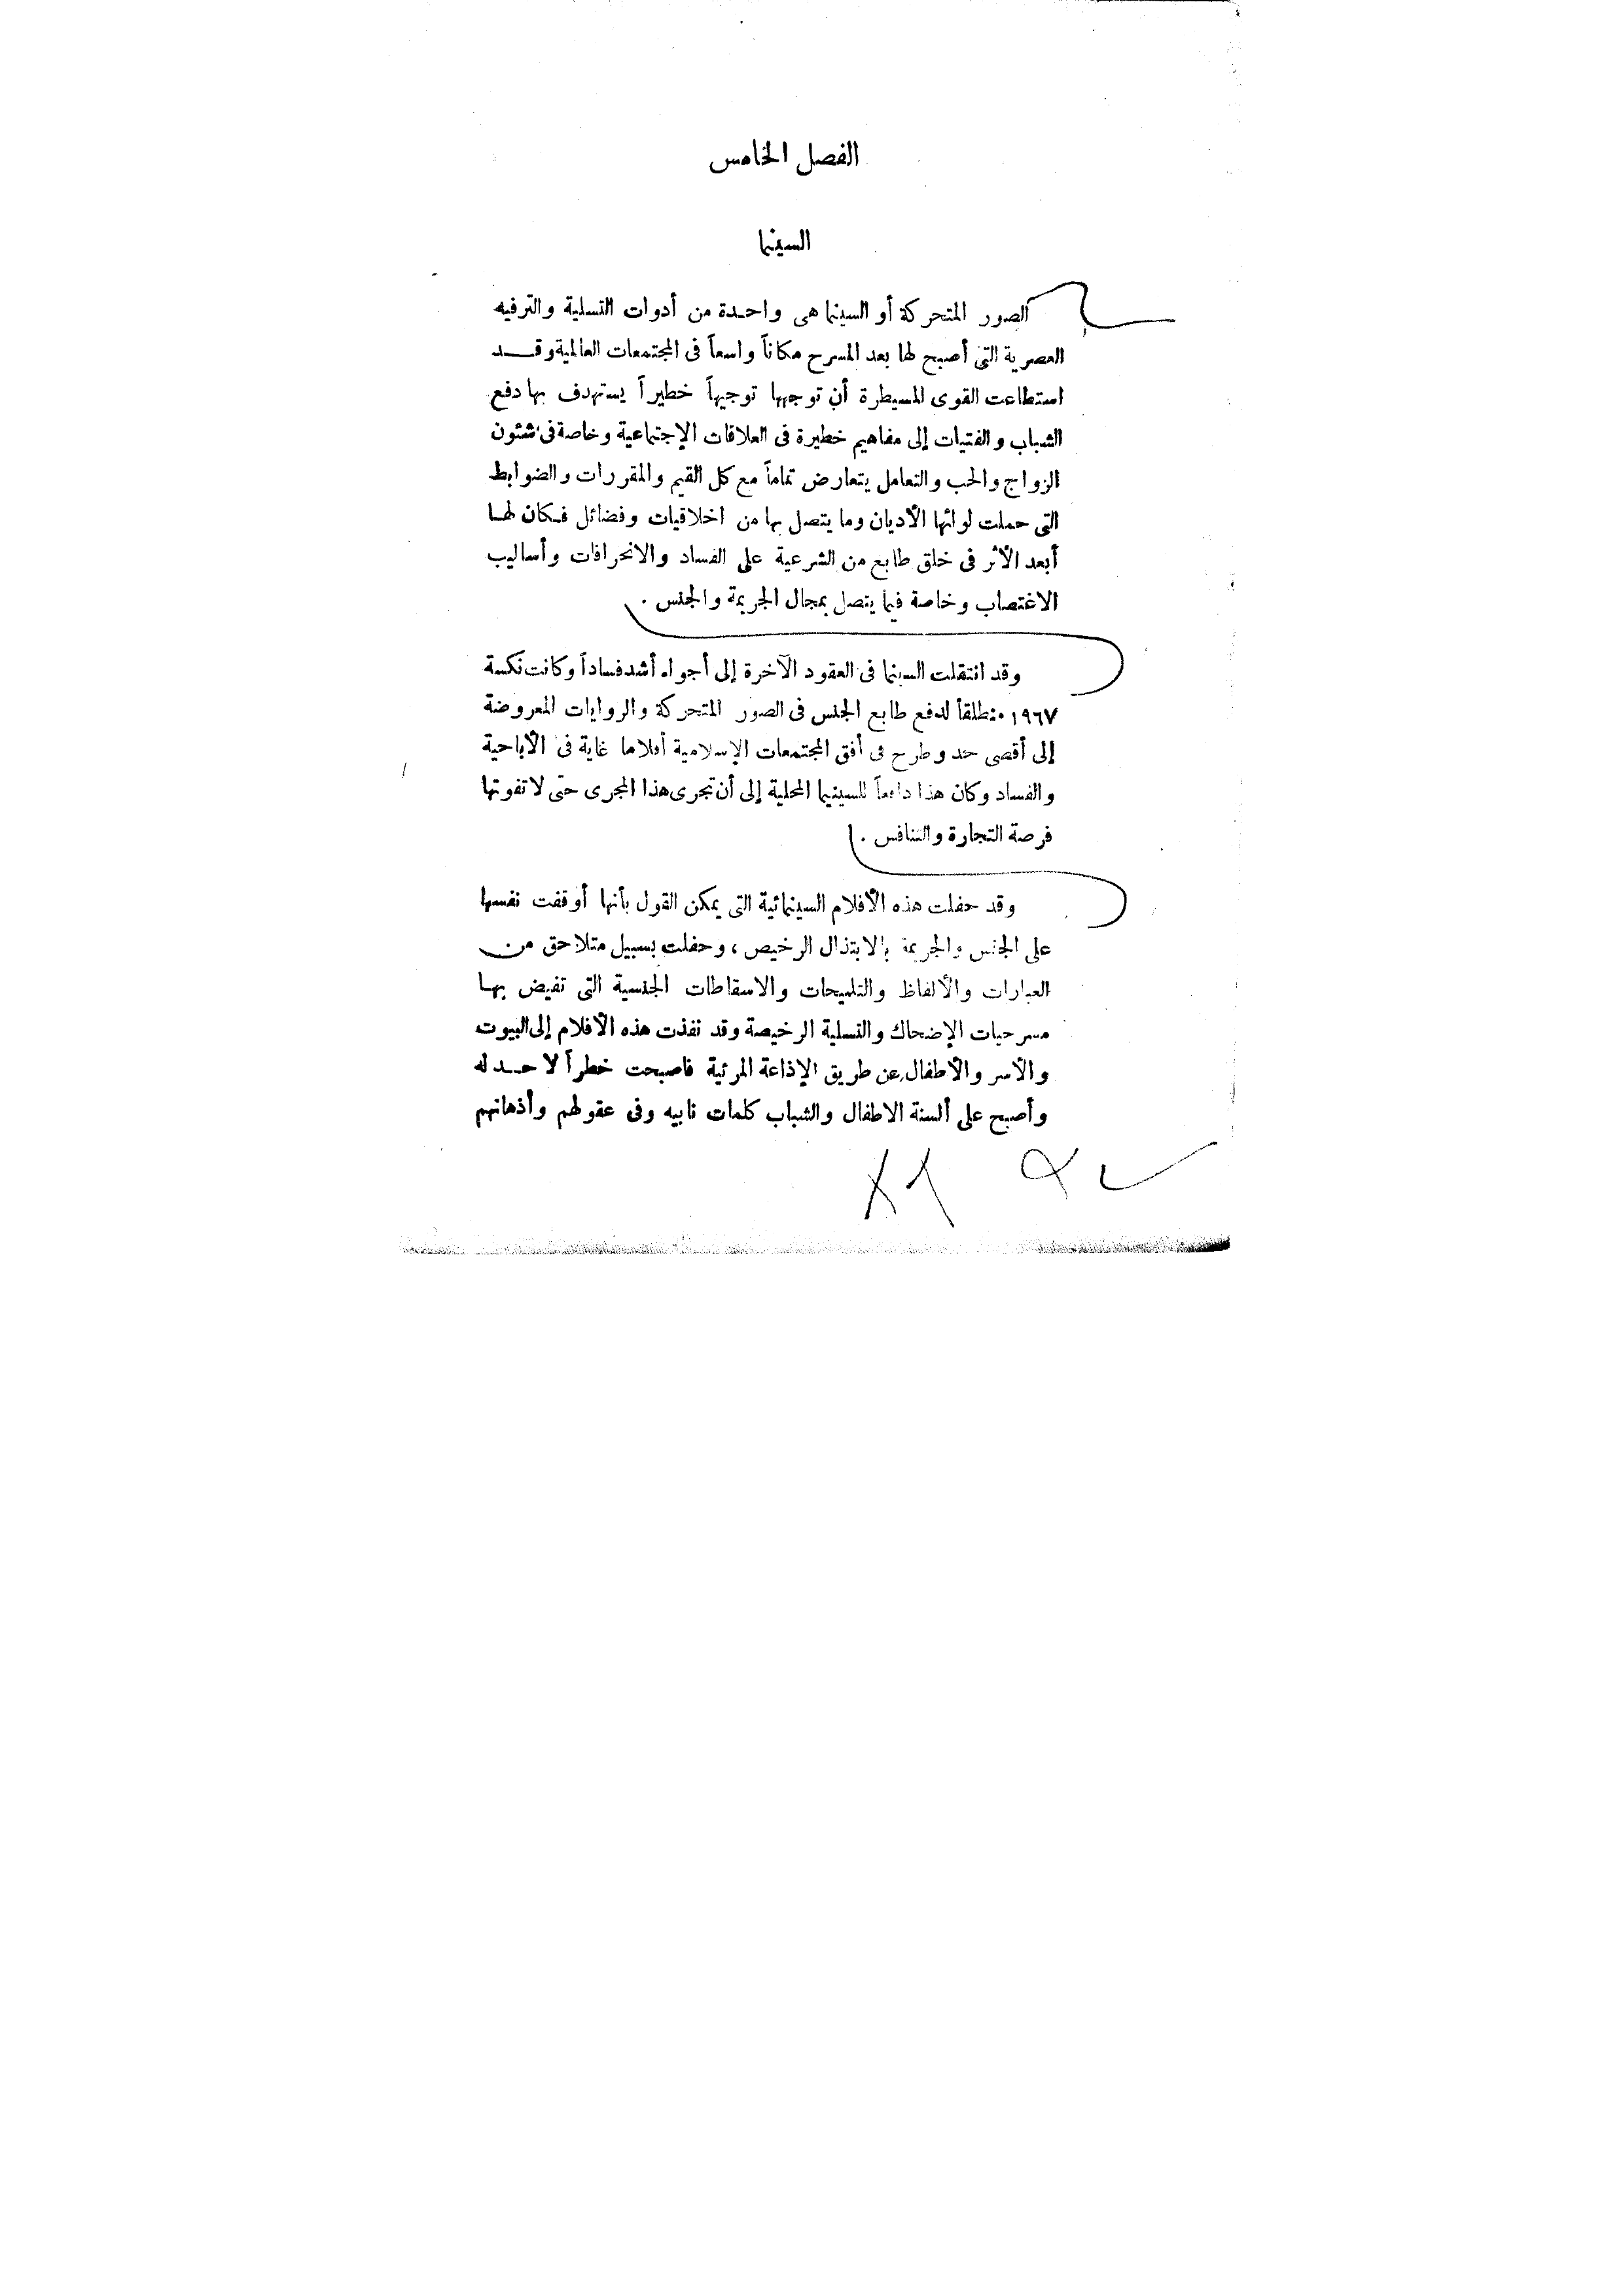 الفصل الخامس
السينما
الصور المتحركة أو السينما هى واحدة من أدوات التسلية والترفيه
العصرية التى أصبح لها بعد المسرح مكاناً واسعاً فى المجتمعات العالمية وقد
استطاعت القوى المسيطرة أن توجهها توجيهاً خطيراً يستهدف بها دفع
الشباب والفتيات إلى مفاهيم خطيرة فى العلاقات الإجتماعية وخاصة فى شئون
الزواج والحب والتعامل يتعارض تماماً مع كل القيم والمقررات والضوابط
التى حملت لوائها الأديان وما يتصل بها من اخلاقيات وفضائل فكان لها
أبعد الأثر فى خلق طابع من الشرعية على الفساد والانحرافات وأساليب
الاغتصاب وخاصة فيما يتصل بمجال الجريمة والجنس .
وقد انتقلت السينما فى العقود الآخرة إلى أجواء أشد فساداً وكانت نكسة
١٩٦٧ منطلقاً لدفع طابع الجنس فى الصور المتحركة والروايات المعروضة
إلى أقصى حد وطرح فى أفق المجتمعات الإسلامية أفلاما غاية فى الأباحية
والفساد وكان هذا دافعاً للسينيما المحلية إلى أن تجرى هذا المجرى حتى لا تفوتها
فرصة التجارة والتنافس .
وقد حفلت هذه الأفلام السينمائية التى يمكن القول بأنها أوقفت نفسها
على الجنس والجريمة بالابتذال الرخيص ، وحفلت بسبيل متلاحق من
العبارات والألفاظ والتلميحات والاسقاطات الجنسية التى تفيض بها
مسرحيات الإضحاك والتسلية الرخيصة وقد نفذت هذه الأفلام إلى البيوت
والأسر والأطفال عن طريق الإذاعة المرئية فاصبحت خطراً لا حد له
وأصبح على ألسنة الاطفال والشباب كلمات نابيه وفى عقولهم وأذهانهم